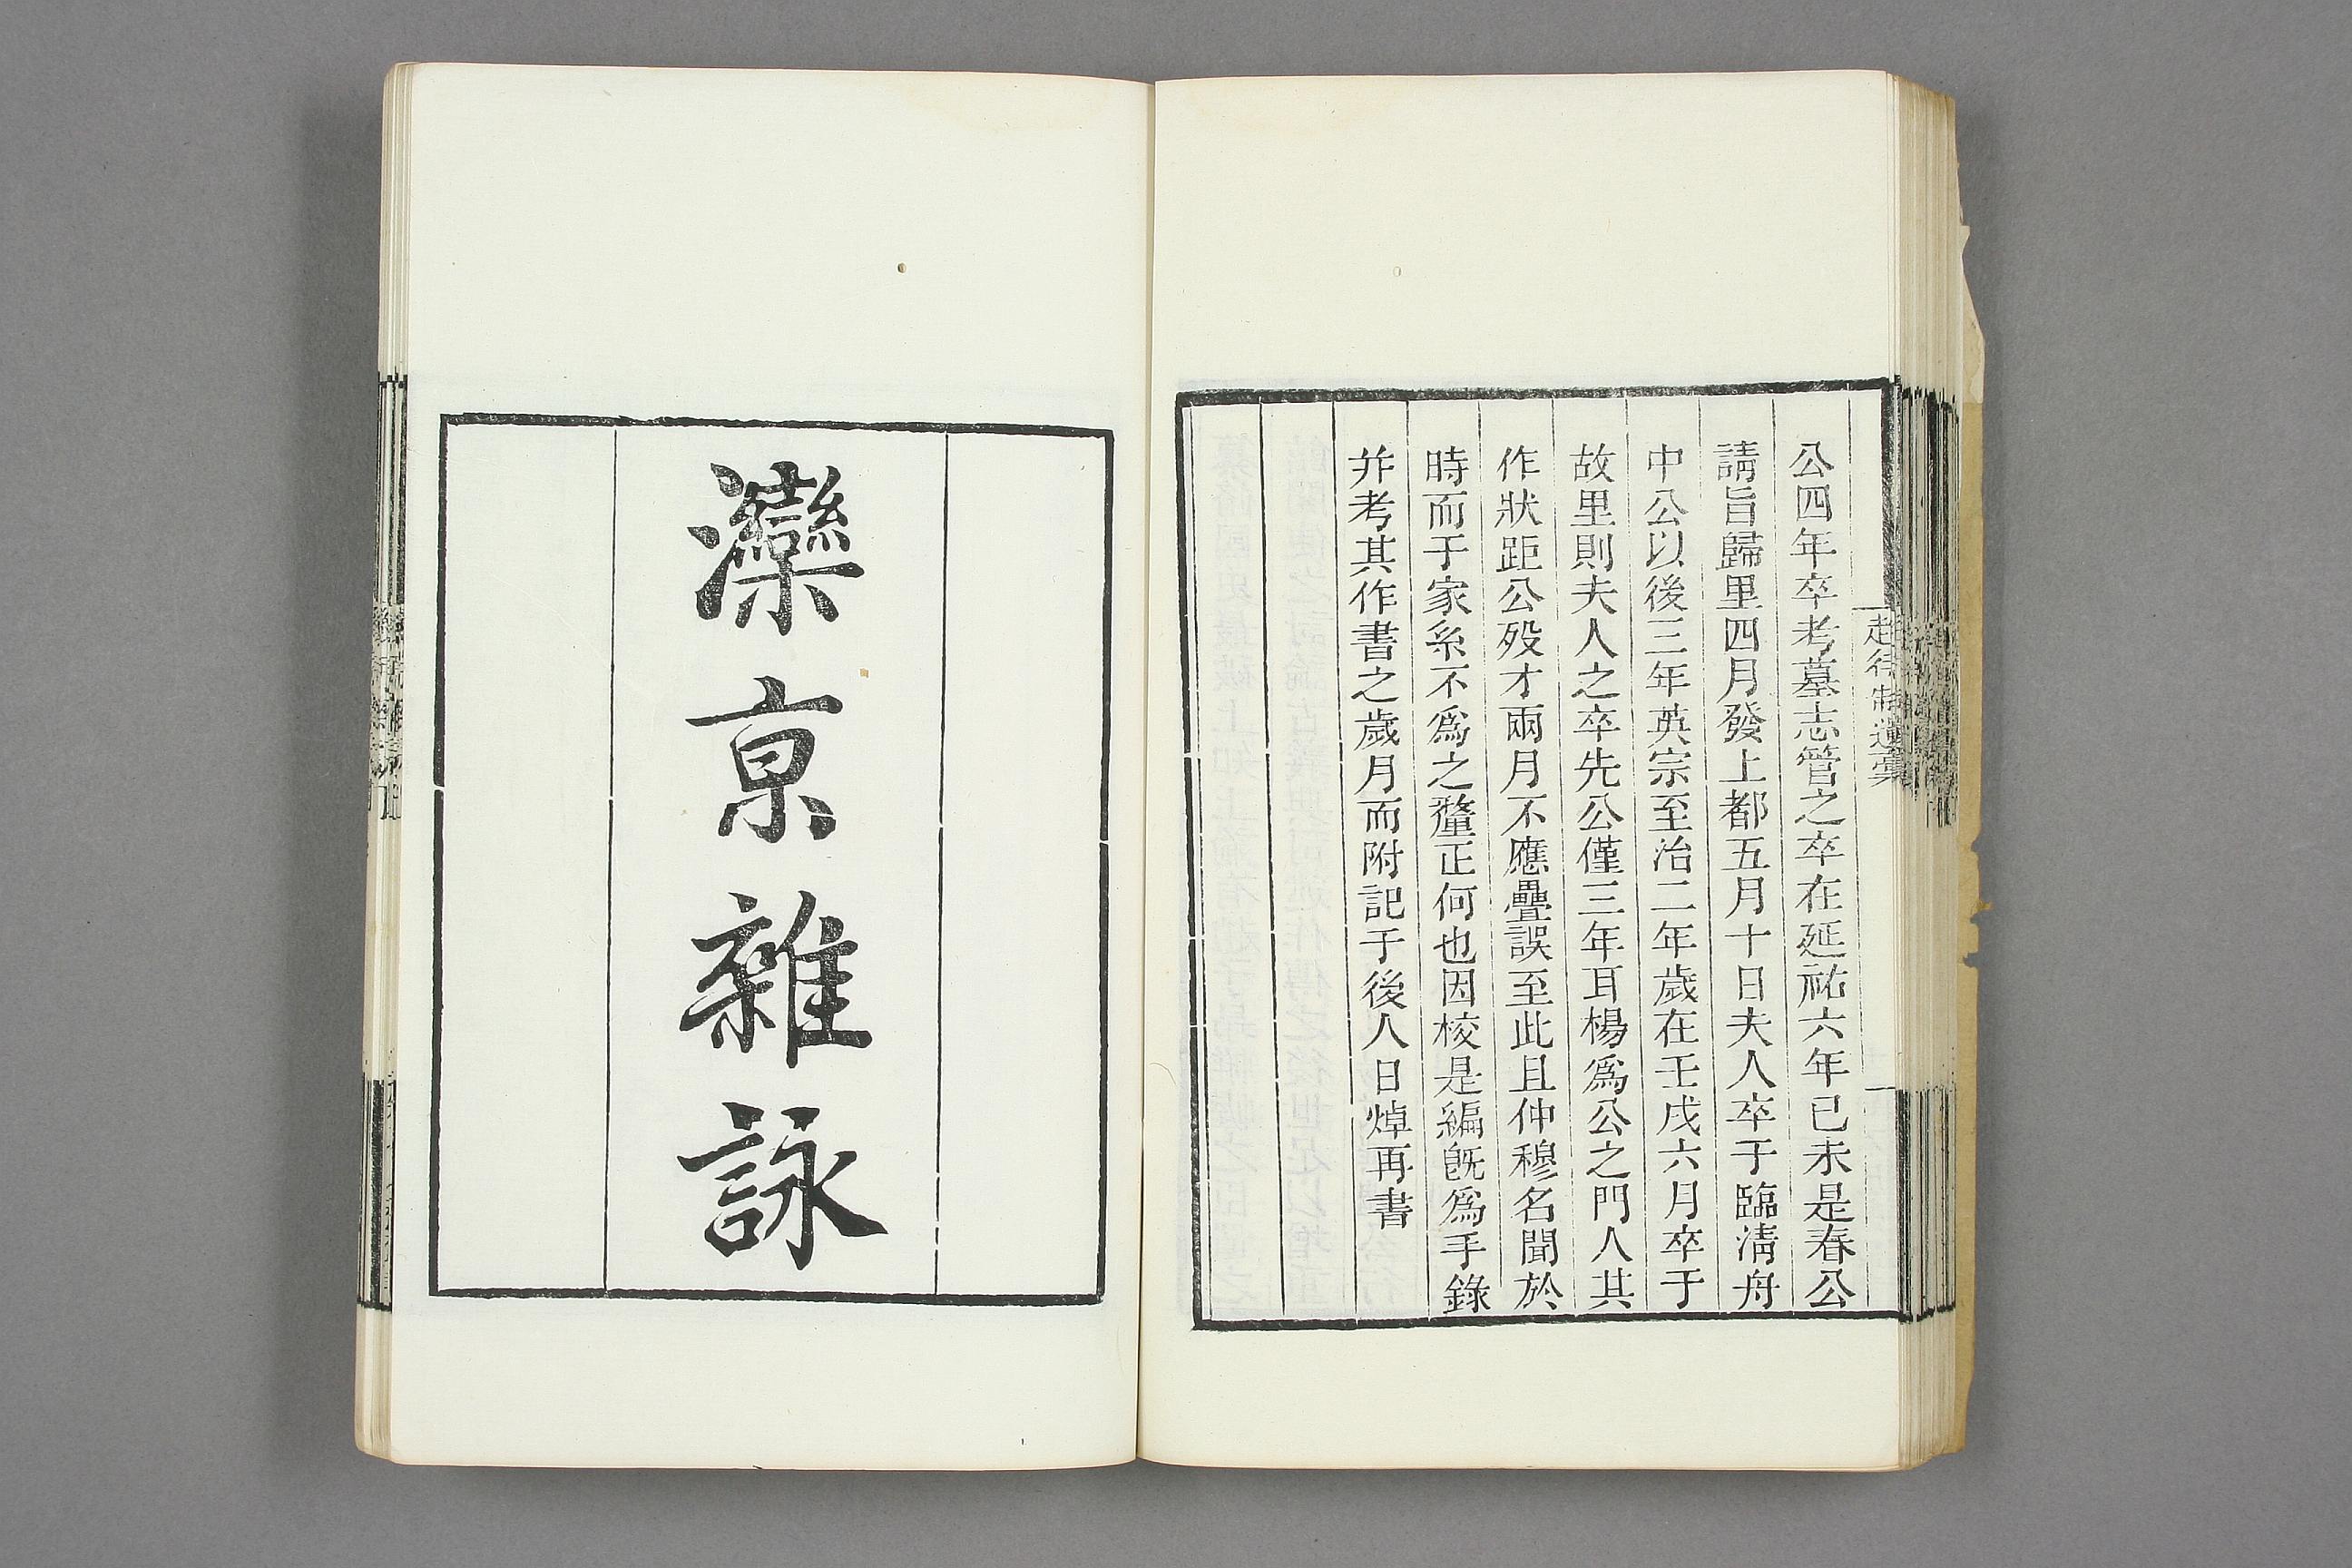 公四年卒考墓志管之卒在延祐六年已未是春公
請旨歸里四月發上都五月十日夫人卒于臨淸舟
中公以後三年英宗至治二年歲在壬戌六月卒于
故里則夫人之卒先公僅三年耳楊爲公之門人其
作狀距公歿才兩月不應疊誤至此且仲穆名聞於
時而于家系不爲之釐正何也因校是編旣爲手錄
幷考其作書之歲月而附記于後人日焯再書
灤京雜詠